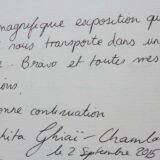 magnifique exposition qu
nous transporte dans un
. Bravo et toutes mes
ions.
onne continuation
hita Ghiaï-Chamlou
le 2 Septembre 2015